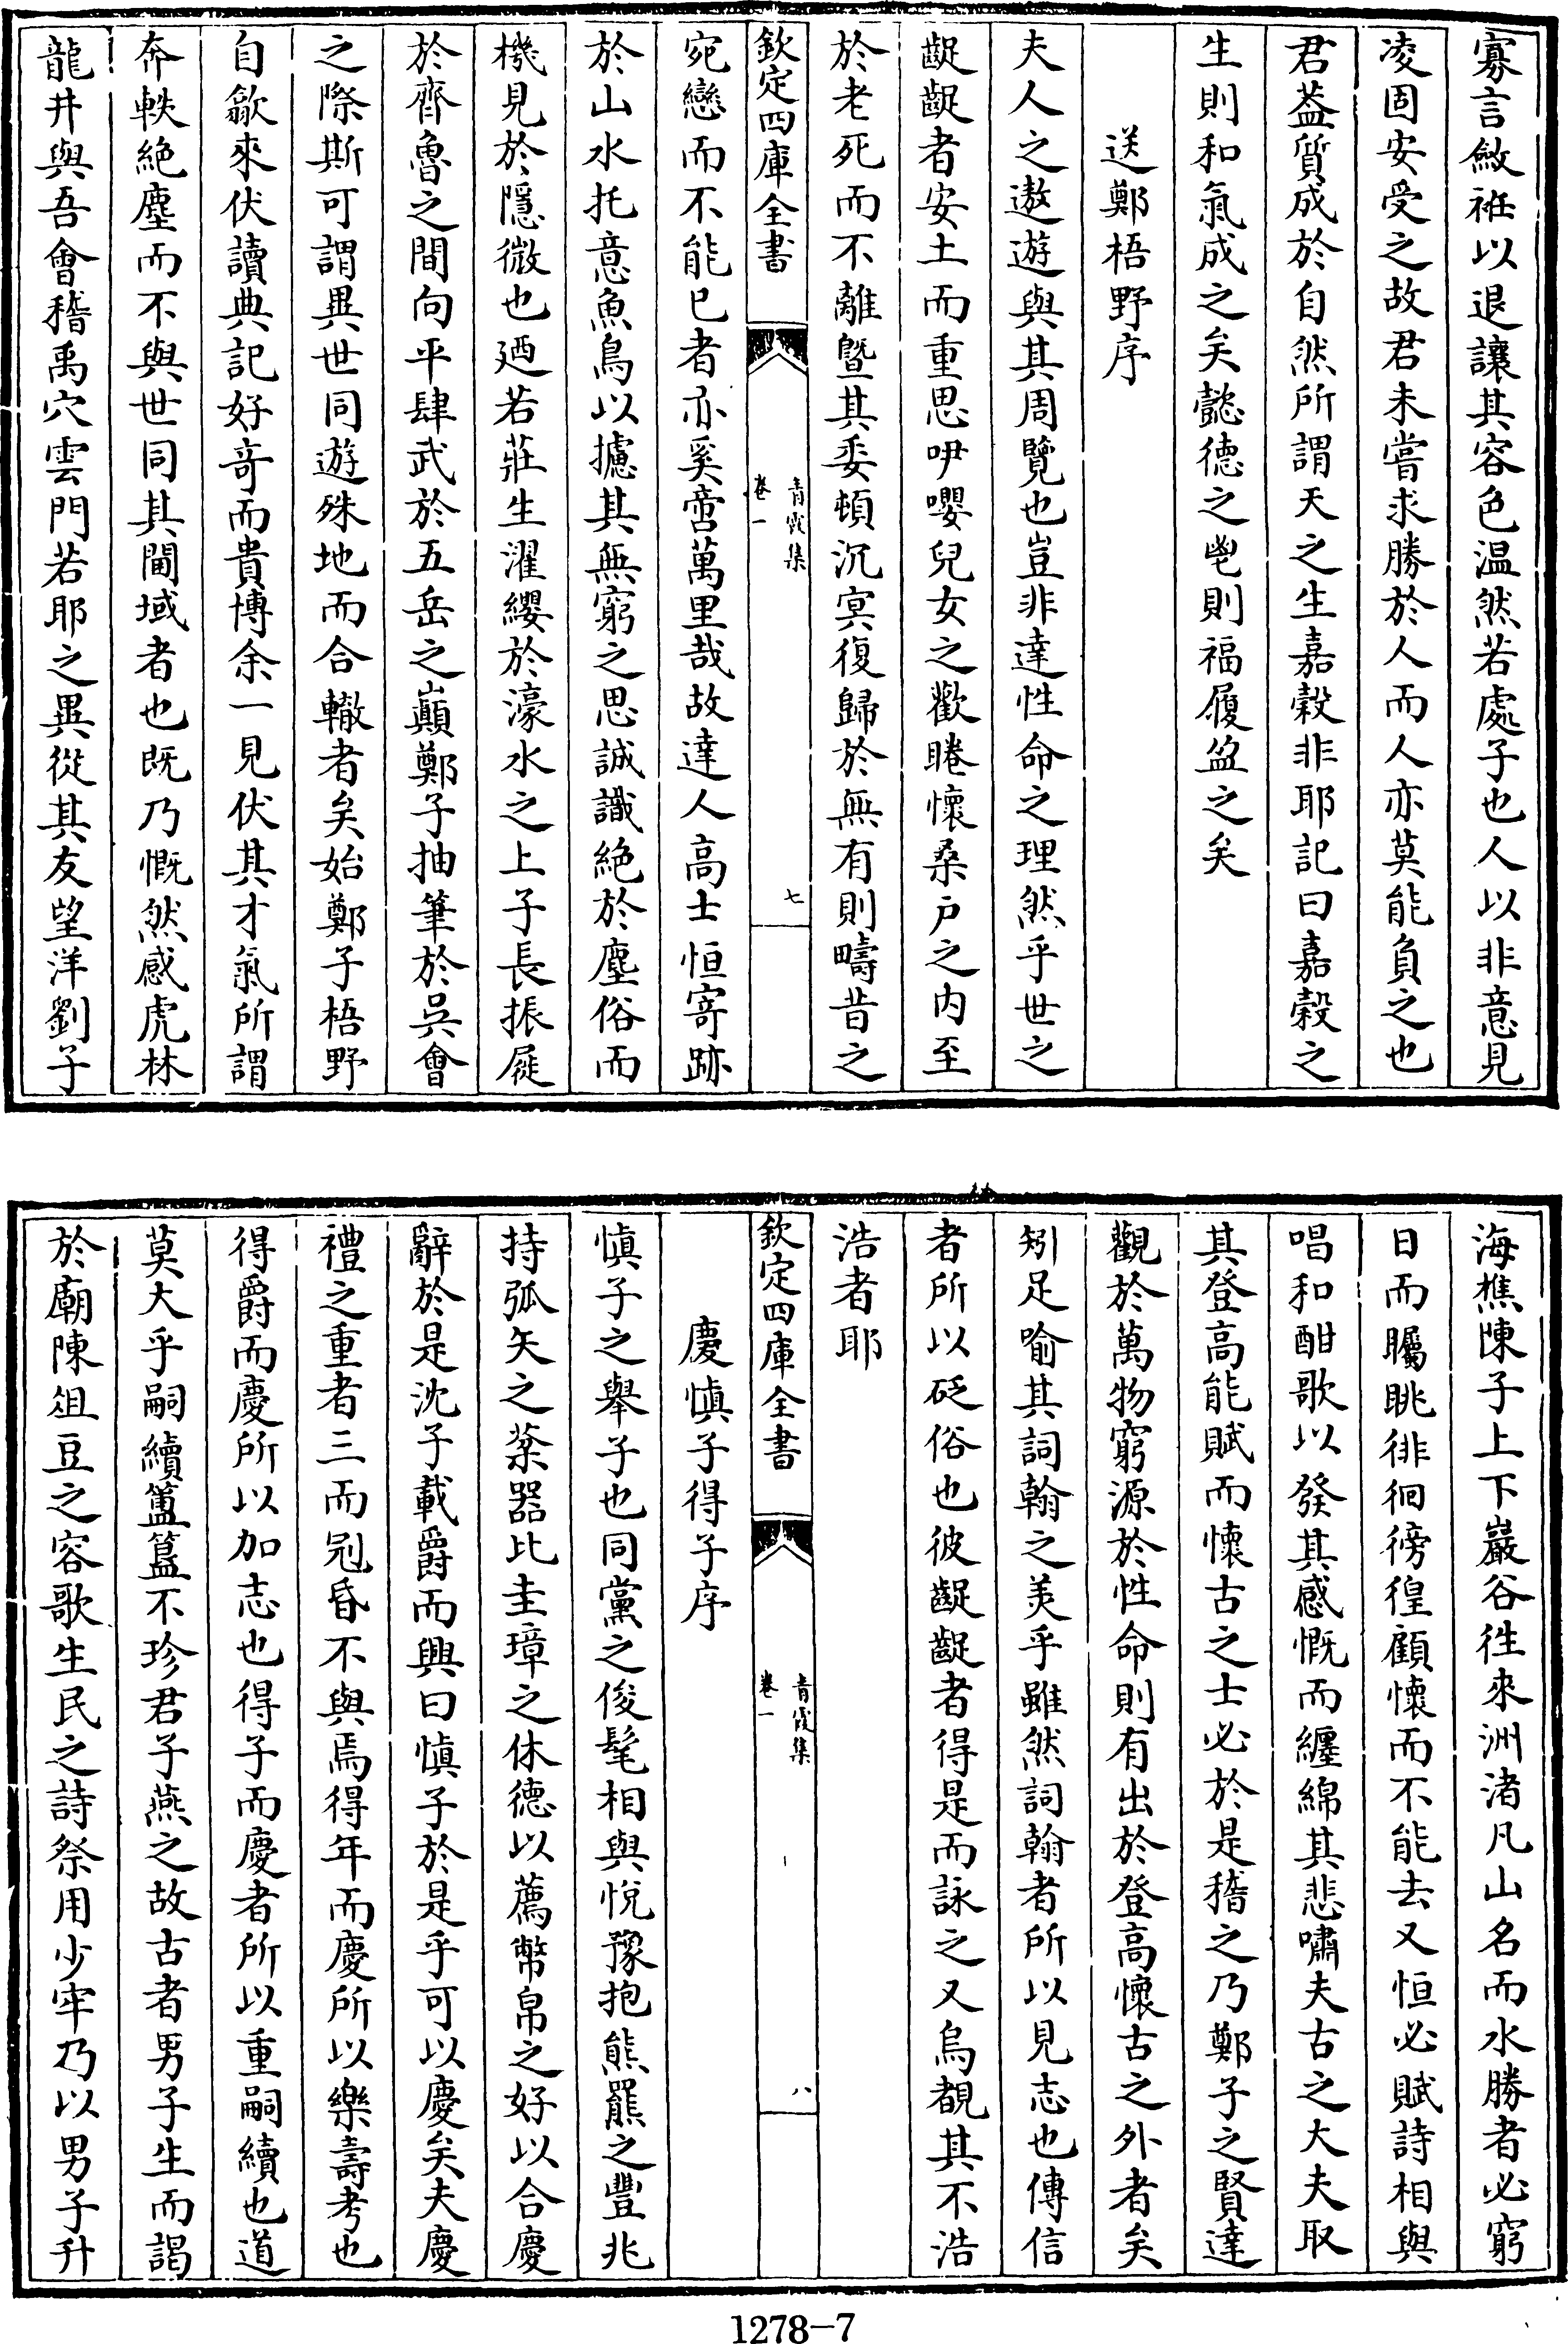 寡言斂袵以退讓其容色温然若處子也人以非意見
凌固安受之故君未嘗求勝於人而人亦莫能負之也
君葢質成於自然所謂天之生嘉穀非耶記曰嘉穀之
生則和氣成之矣懿德之鬯則福履盈之矣
送鄭梧野序
夫人之遨遊與其周覽也豈非達性命之理然乎世之
齪齪者安土而重思吚嚶兒女之歡睠懷桑户之内至
於老死而不離曁其委頓沉寞復歸於無有則疇昔之
欽定四庫全書
青霞集
卷一
七
宛戀而不能已者亦奚啻萬里哉故達人高士恒寄跡
於山水托意魚鳥以攄其無窮之思誠識絶於塵俗而
機見於隱微也廼若莊生濯纓於濠水之上子長振屣
於齊魯之間向平肆武於五岳之巔鄭子抽筆於吳會
之際斯可謂異世同遊殊地而合轍者矣始鄭子梧野
自歙來伏讀典記好竒而貴博余一見伏其才氣所謂
奔軼絶塵而不與世同其閫域者也既乃慨然感虎林
龍井與吾會稽禹穴雲門若耶之異從其友望洋劉子
海樵陳子上下巖谷徃來洲渚凡山名而水勝者必窮
日而矚眺徘徊徬徨顧懷而不能去又恒必賦詩相與
唱和酣歌以發其感慨而纏綿其悲嘯夫古之大夫取
其登高能賦而懷古之士必於是稽之乃鄭子之賢達
觀於萬物窮源於性命則有出於登高懷古之外者矣
矧足喻其詞翰之美乎雖然詞翰者所以見志也傳信
者所以砭俗也彼齪齪者得是而詠之又烏覩其不浩
浩者耶
欽定四庫全書
青霞集
卷一
八
慶慎子得子序
慎子之舉子也同黨之俊髦相與悅豫抱熊羆之豐兆
持弧矢之蕖器比圭璋之休德以薦幣帛之好以合慶
辭於是沈子載爵而興曰慎子於是乎可以慶矣夫慶
禮之重者三而冠昏不與焉得年而慶所以樂壽考也
得爵而慶所以加志也得子而慶者所以重嗣續也道
莫大乎嗣續簠簋不珍君子燕之故古者男子生而謁
於廟陳俎豆之容歌生民之詩祭用少牢乃以男子升
1278-7